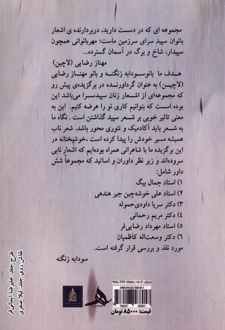 مجموعه ای که در دست دارید، دربردارنده ی اشعار
بانوان سپید سرای سرزمین ماست؛ مهربانوانی همچون
سپیدار، شاخ و برگ در آسمان گسترده...
مهناز رضایی (لاچین)
هدف ما بانوسودابه زنگنه و بانو مهناز رضایی
(لاچین) به عنوان گردآورنده در برگزیده‌ی پیش رو
که مجموعه‌ای از اشعار زنان سپیدسرا می‌باشد این
بوده است که بتوانیم کاری نو را عرضه کنیم. این به
معنی تاثیر خوبی بر شعر سپید گذاشتن است. نگاه ما
به شعر باید آکادمیک و تئوری محور باشد. شعر ناب
همیشه مسیر خودش را پیدا کرده است. خوشبختانه در
این برگزیده ما با شاعرانی همراه بوده‌ایم که اشعار نابی
سروده‌اند و زیر نظر داوران و اساتید که مجموعا شش
داور شامل:
۱) استاد جمال بیگ
۲) استاد علی خوشه‌چین جبر هندهی
۳) دکتر سریا داوودی‌حموله
۴) دکتر مریم رحمانی
۵) استاد مهرداد رضایی‌فر
۶) دکتر وسعت‌اله کاظمیان
مورد نقد و بررسی قرار گرفته است.
سودابه زنگنه
قیمت: ۸۵۰۰۰ تومان
طرح جلد: علیرضا
نقاش روی جلد: